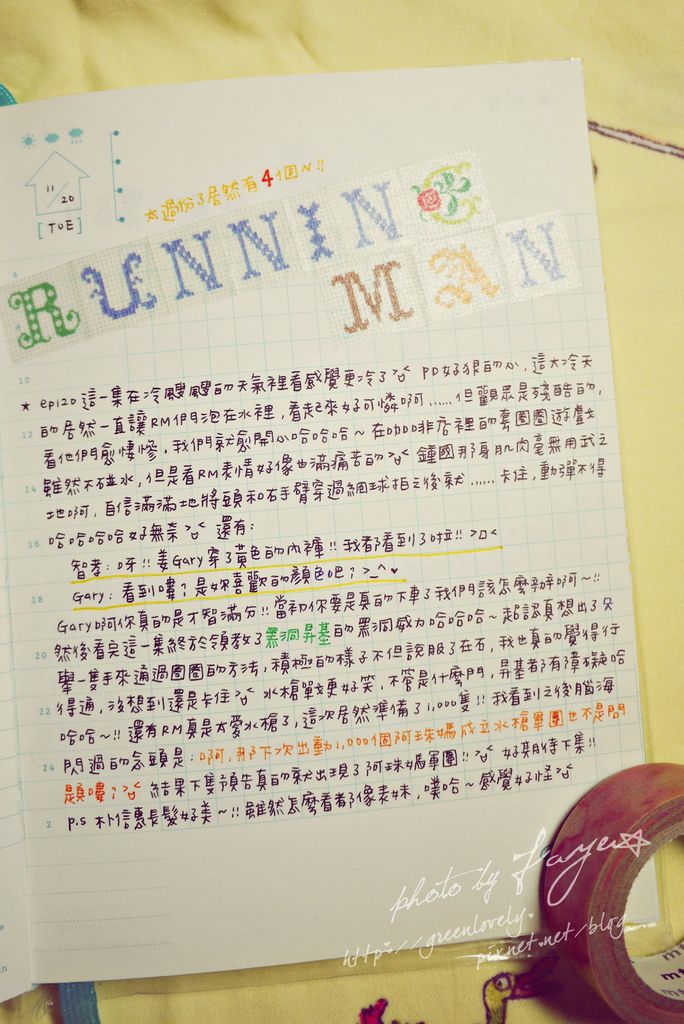 11/20
[TUE]
☆過份了居然有4個N!!
RUNNING
MAN
10
★ ep120 這一集在冷颼颼的天氣裡看感覺更冷了>"< PD好狠的心，這大冷天
12
的居然一直讓RM們泡在水裡，看起來好可憐啊……但觀眾是殘酷的，
看他們愈悽慘，我們就愈開心哈哈哈~ 在咖啡店裡的套圈圈遊戲
14
雖然不碰水，但是看RM表情好像也滿痛苦的>"< 鍾國那身肌肉毫無用武之
地啊，自信滿滿地將頭和右手臂穿過網球拍之後就……卡住，動彈不得
16
哈哈哈哈好無奈>"< 還有：
智孝：呀!!姜Gary穿了黃色的內褲!!我都看到了啦!!>口<
18
Gary：看到嘍？是妳喜歡的顏色吧？>_^♥
Gary啊你真的是不智滿分!!當初你要是真的下車了我們該怎麼辦啊~!!
20
然後看完這一集終於領教了黑洞昇基的黑洞威力哈哈哈~ 超認真想出了只
舉一隻手來通過圈圈的方法，積極的樣子不但說服了在石，我也真的覺得行
22
得通，沒想到還是卡住>"< 水槍戰更好笑，不管是什麼門，昇基都有障礙哈
哈哈~!! 還有RM真是太愛水槍了，這次居然準備了1,000隻!!我看到之後腦海
24
閃過的念頭是：啊，那下次出動1,000個阿珠媽成立水槍軍團也不是問
題嘍？>"< 結果下集預告真的就出現了阿珠媽軍團!!>"< 好期待下集!!
2
p.s 朴信惠長髮好美~!!雖然怎麼看都像表妹，噗哈~感覺好怪>"<
photo by Faye☆
http://greenlovely.
pixnet.net/blog
mt